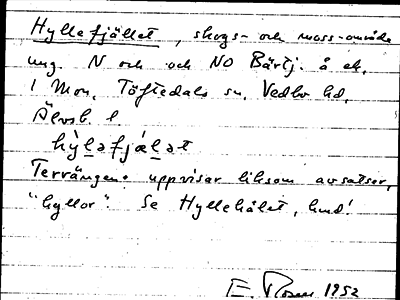 Hyllefjället, skogs- och moss-område
ung. N och och NO Bärtj. å ek.
1 Mon, Töftedals sn, Vedbo hd,
Älvsb. l
hỳlefjälet
Terrängen uppvisar liksom avsatser,
"hyllor". Se Hyllehålet, hmd!
E. Rosen 1952